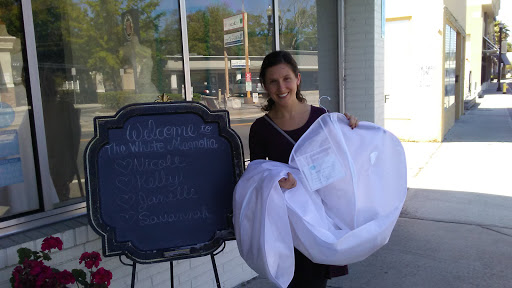 Welcome to
The White Magnolia
♡Nicole
♡Kelly
♡Janelle
♡Savannah